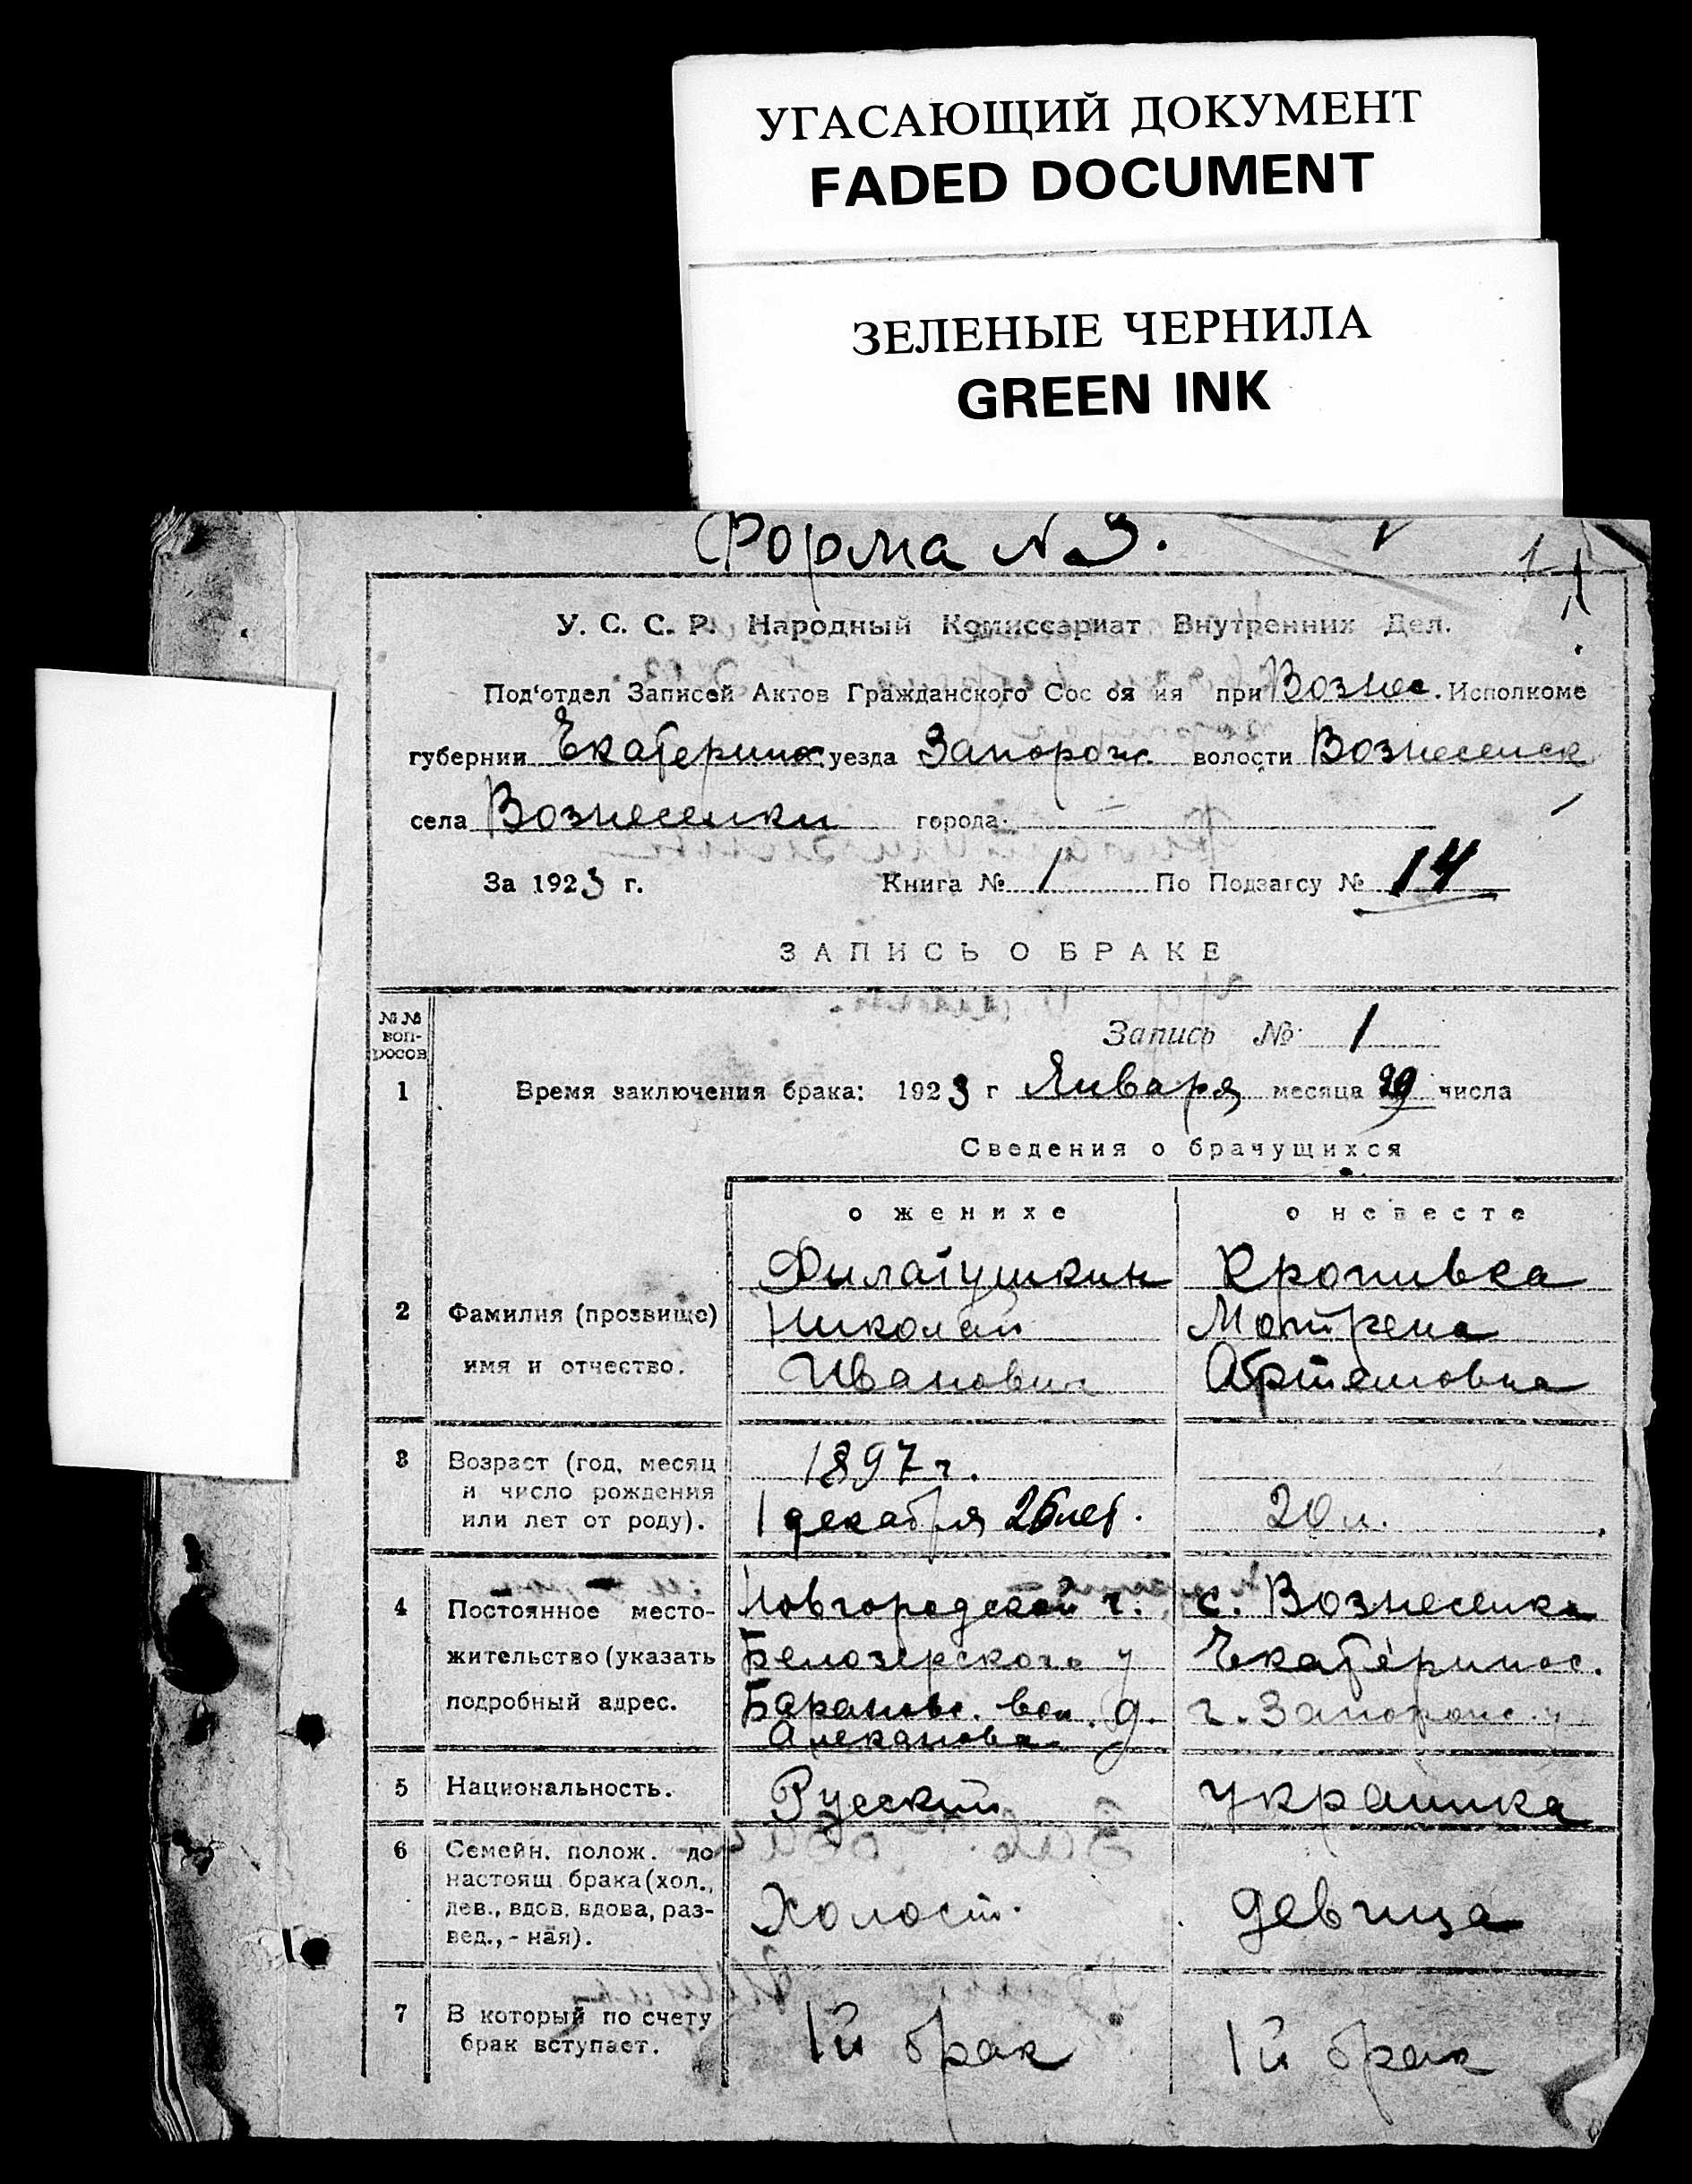 УГАСАЮЩИЙ ДОКУМЕНТ
FADED DOCUMENT
ЗЕЛЕНЫЕ ЧЕРНИЛА
GREEN INK
Форма №3.
1
У. С. С. Р. Народный Комиссариат Внутренних Дел.
Под'отдел Записей Актов Гражданского Сос оя ия при Вознес. Исполкоме
губернии Екатеринос. уезда Запорож. волости Вознесенск
села Вознесенки города
За 1923 г. Книга № 1 По Подзагсу № 14
ЗАПИСЬ О БРАКЕ
№№ воп-
росов
Запись № 1
1 Время заключения брака: 1923 г Января месяца 29 числа
Сведения о брачущихся
о женихе о невесте
Филатушкин Кропивка
2 Фамилия (прозвище) Николай Мотрена
имя и отчество. Иванович Артемовна
3 Возраст (год, месяц 1897 г.
и число рождения
или лет от роду). 1 декабря 26 лет. 20 л.
4 Постоянное место- Новгородской г. с. Вознесенка
жительство (указать Белозерского у Екатеринос.
подробный адрес. Барановс. вол. д. г. Запорожс. у
Алеканова
5 Национальность. Русский Украинка
6 Семейн. полож. до
настоящ брака (хол.,
дев., вдов, вдова, раз- Холост. девица
вед., - ная).
7 В который по счету 1й брак 1й брак
брак вступает.